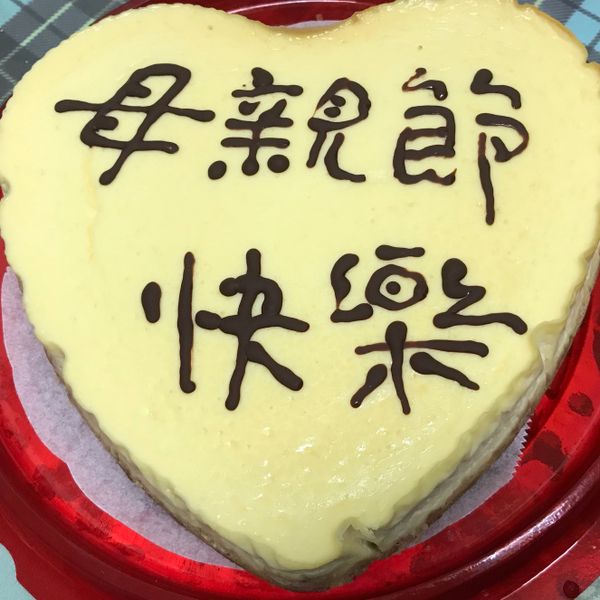 母親節
快樂